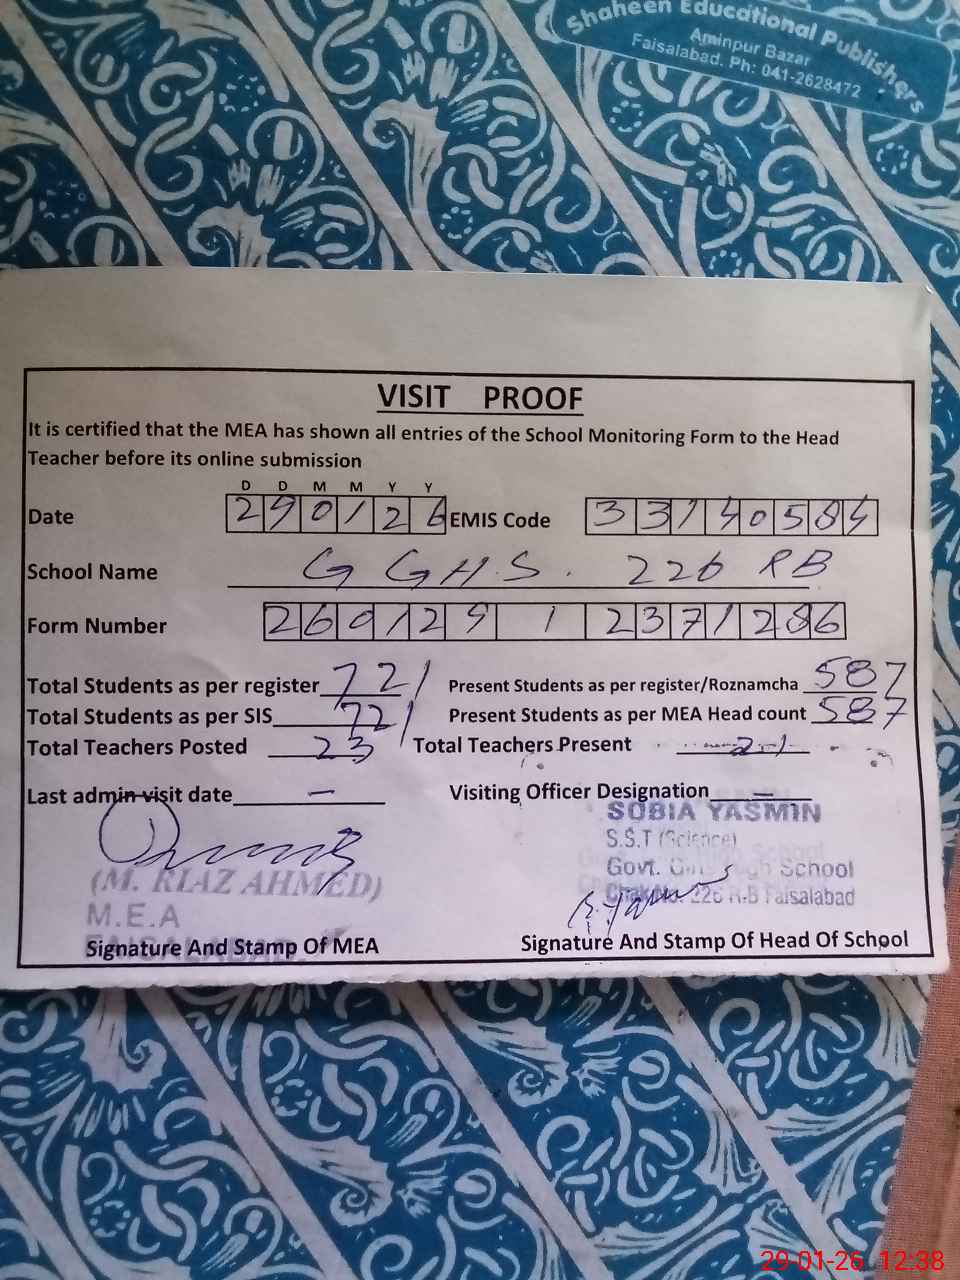 Shaheen Educational Publishers
Aminpur Bazar
Faisalabad. Ph: 041-2628472
VISIT PROOF
It is certified that the MEA has shown all entries of the School Monitoring Form to the Head
Teacher before its online submission
D D M M Y Y
Date 290126 EMIS Code 33140584
School Name G GHS. 226 RB
Form Number 260129 1 2371286
Total Students as per register 721 Present Students as per register/Roznamcha 587
Total Students as per SIS 721 Present Students as per MEA Head count 587
Total Teachers Posted 23 Total Teachers Present 21
Last admin visit date — Visiting Officer Designation —
SOBIA YASMIN
S.S.T (Science)
Govt. Girls High School
Chak No. 226 R.B Faisalabad
(M. RIAZ AHMED)
M.E.A
FAISALABAD.
Signature And Stamp Of MEA Signature And Stamp Of Head Of School
29-01-26 12:38